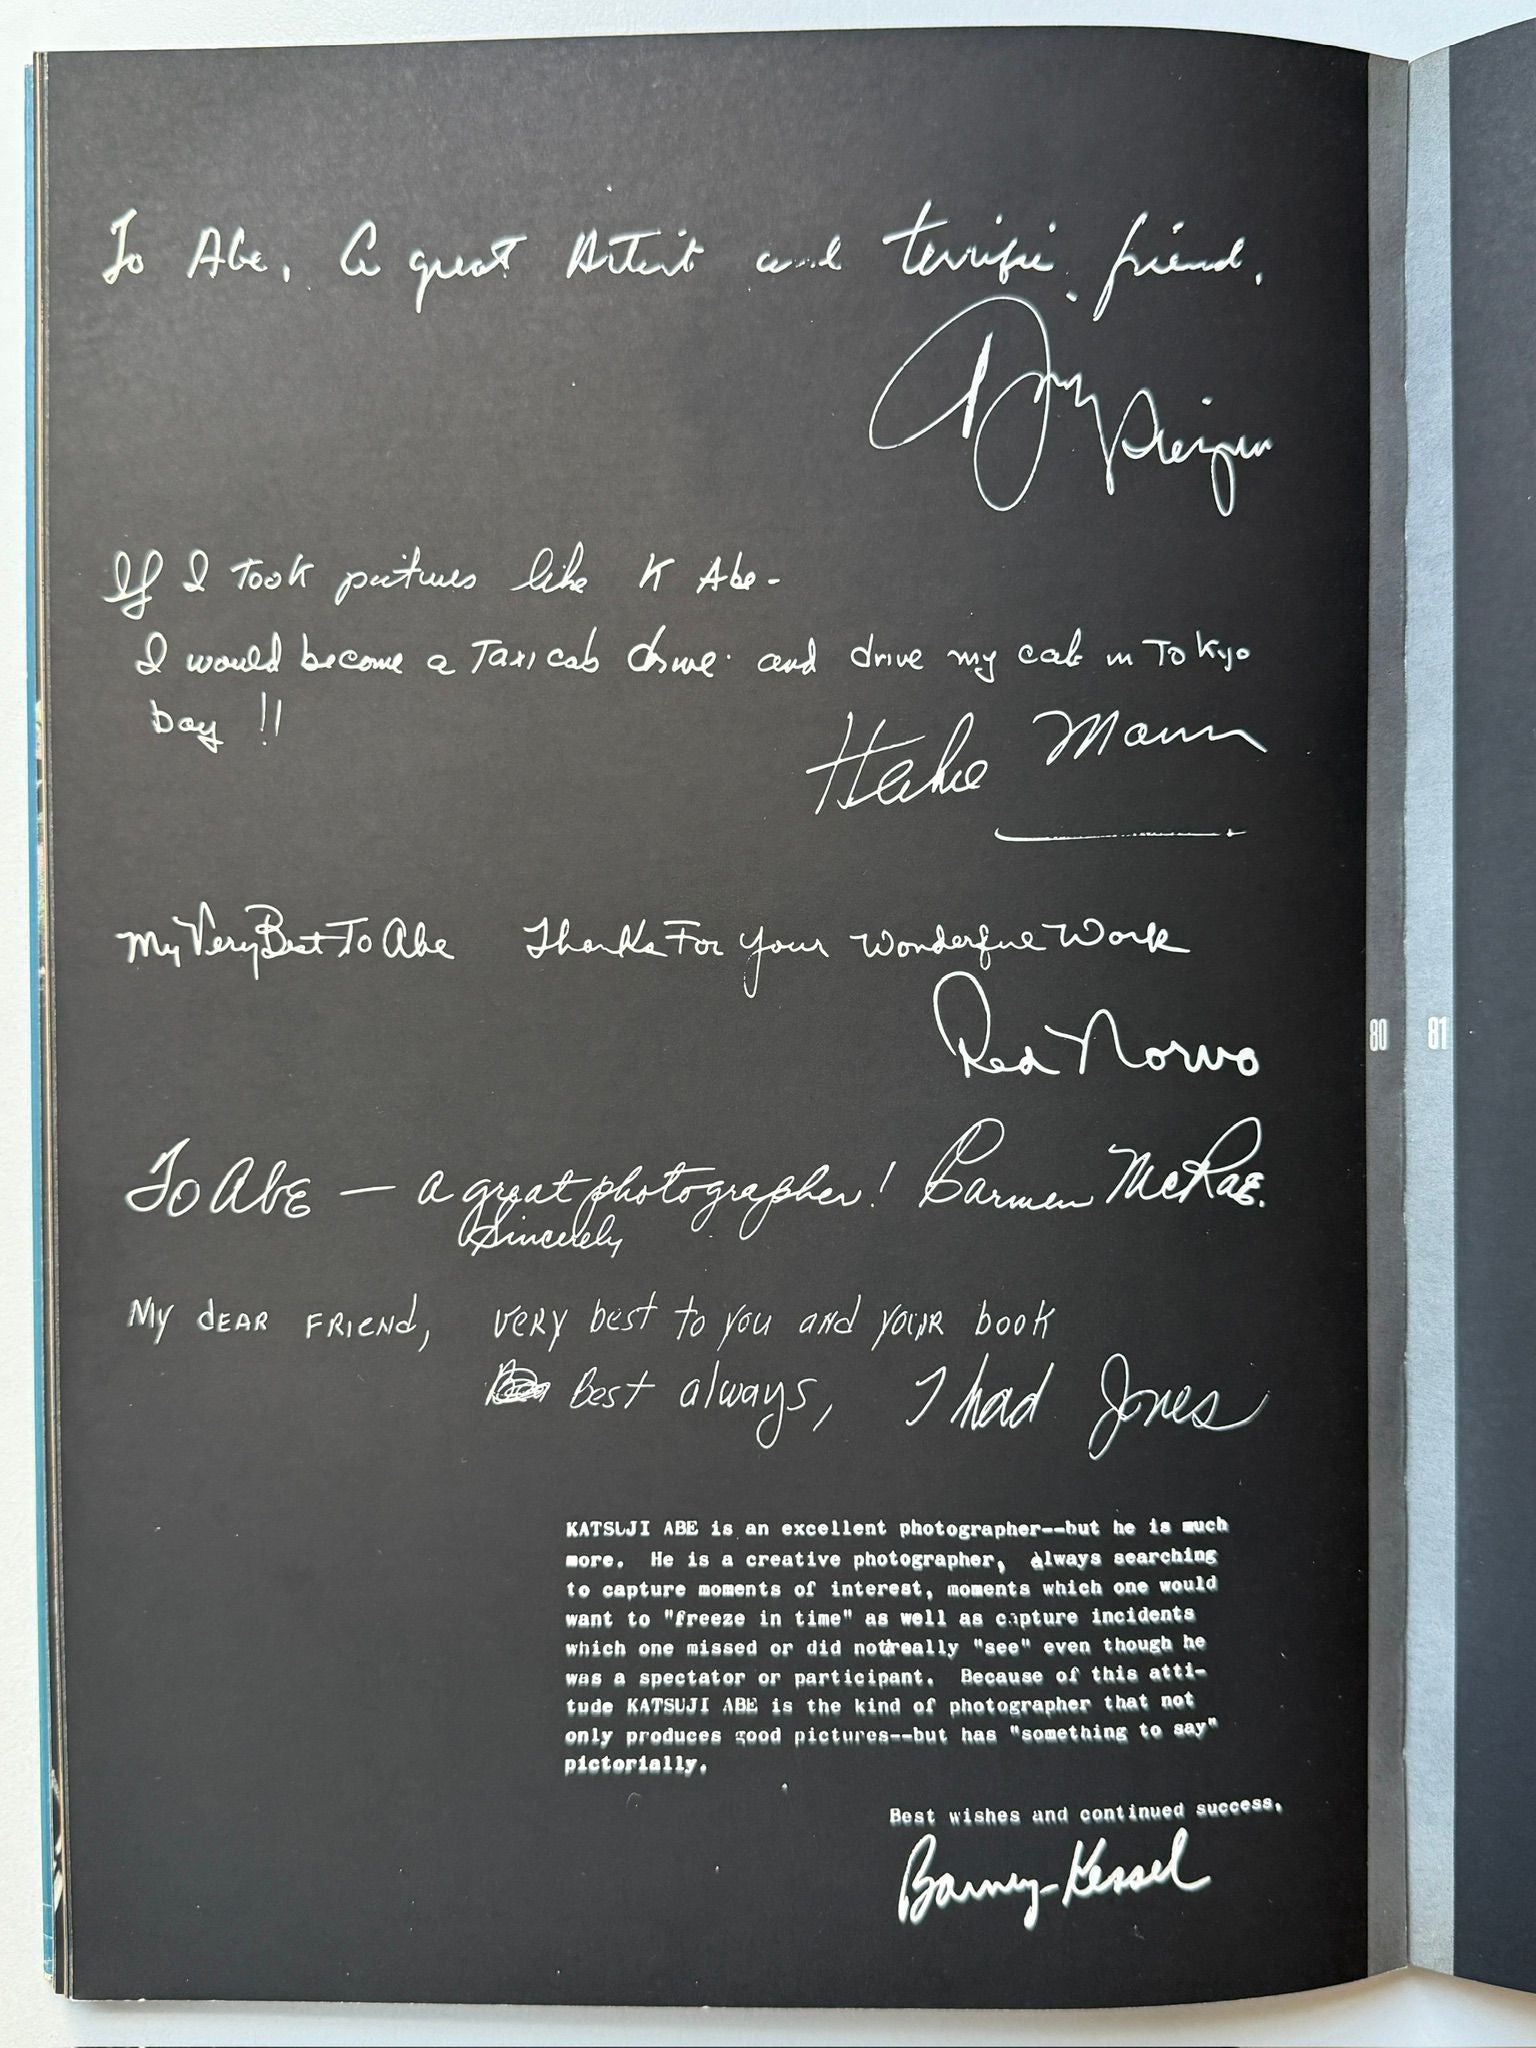 To Abe, A great Artist and terrific friend.
If I took pictures like K Abe-
I would become a Taxicab drive and drive my cab in Tokyo
bay !!
Herbie Mann
My Very Best To Abe Thanks For your Wonderful Work
Red Norvo
To Abe — a great photographer! Carmen McRae.
Sincerely
My dear friend, very best to you and your book
Best always, Thad Jones
80 81
KATSUJI ABE is an excellent photographer--but he is much
more. He is a creative photographer, always searching
to capture moments of interest, moments which one would
want to "freeze in time" as well as capture incidents
which one missed or did not really "see" even though he
was a spectator or participant. Because of this atti-
tude KATSUJI ABE is the kind of photographer that not
only produces good pictures--but has "something to say"
pictorially.
Best wishes and continued success,
Barney Kessel